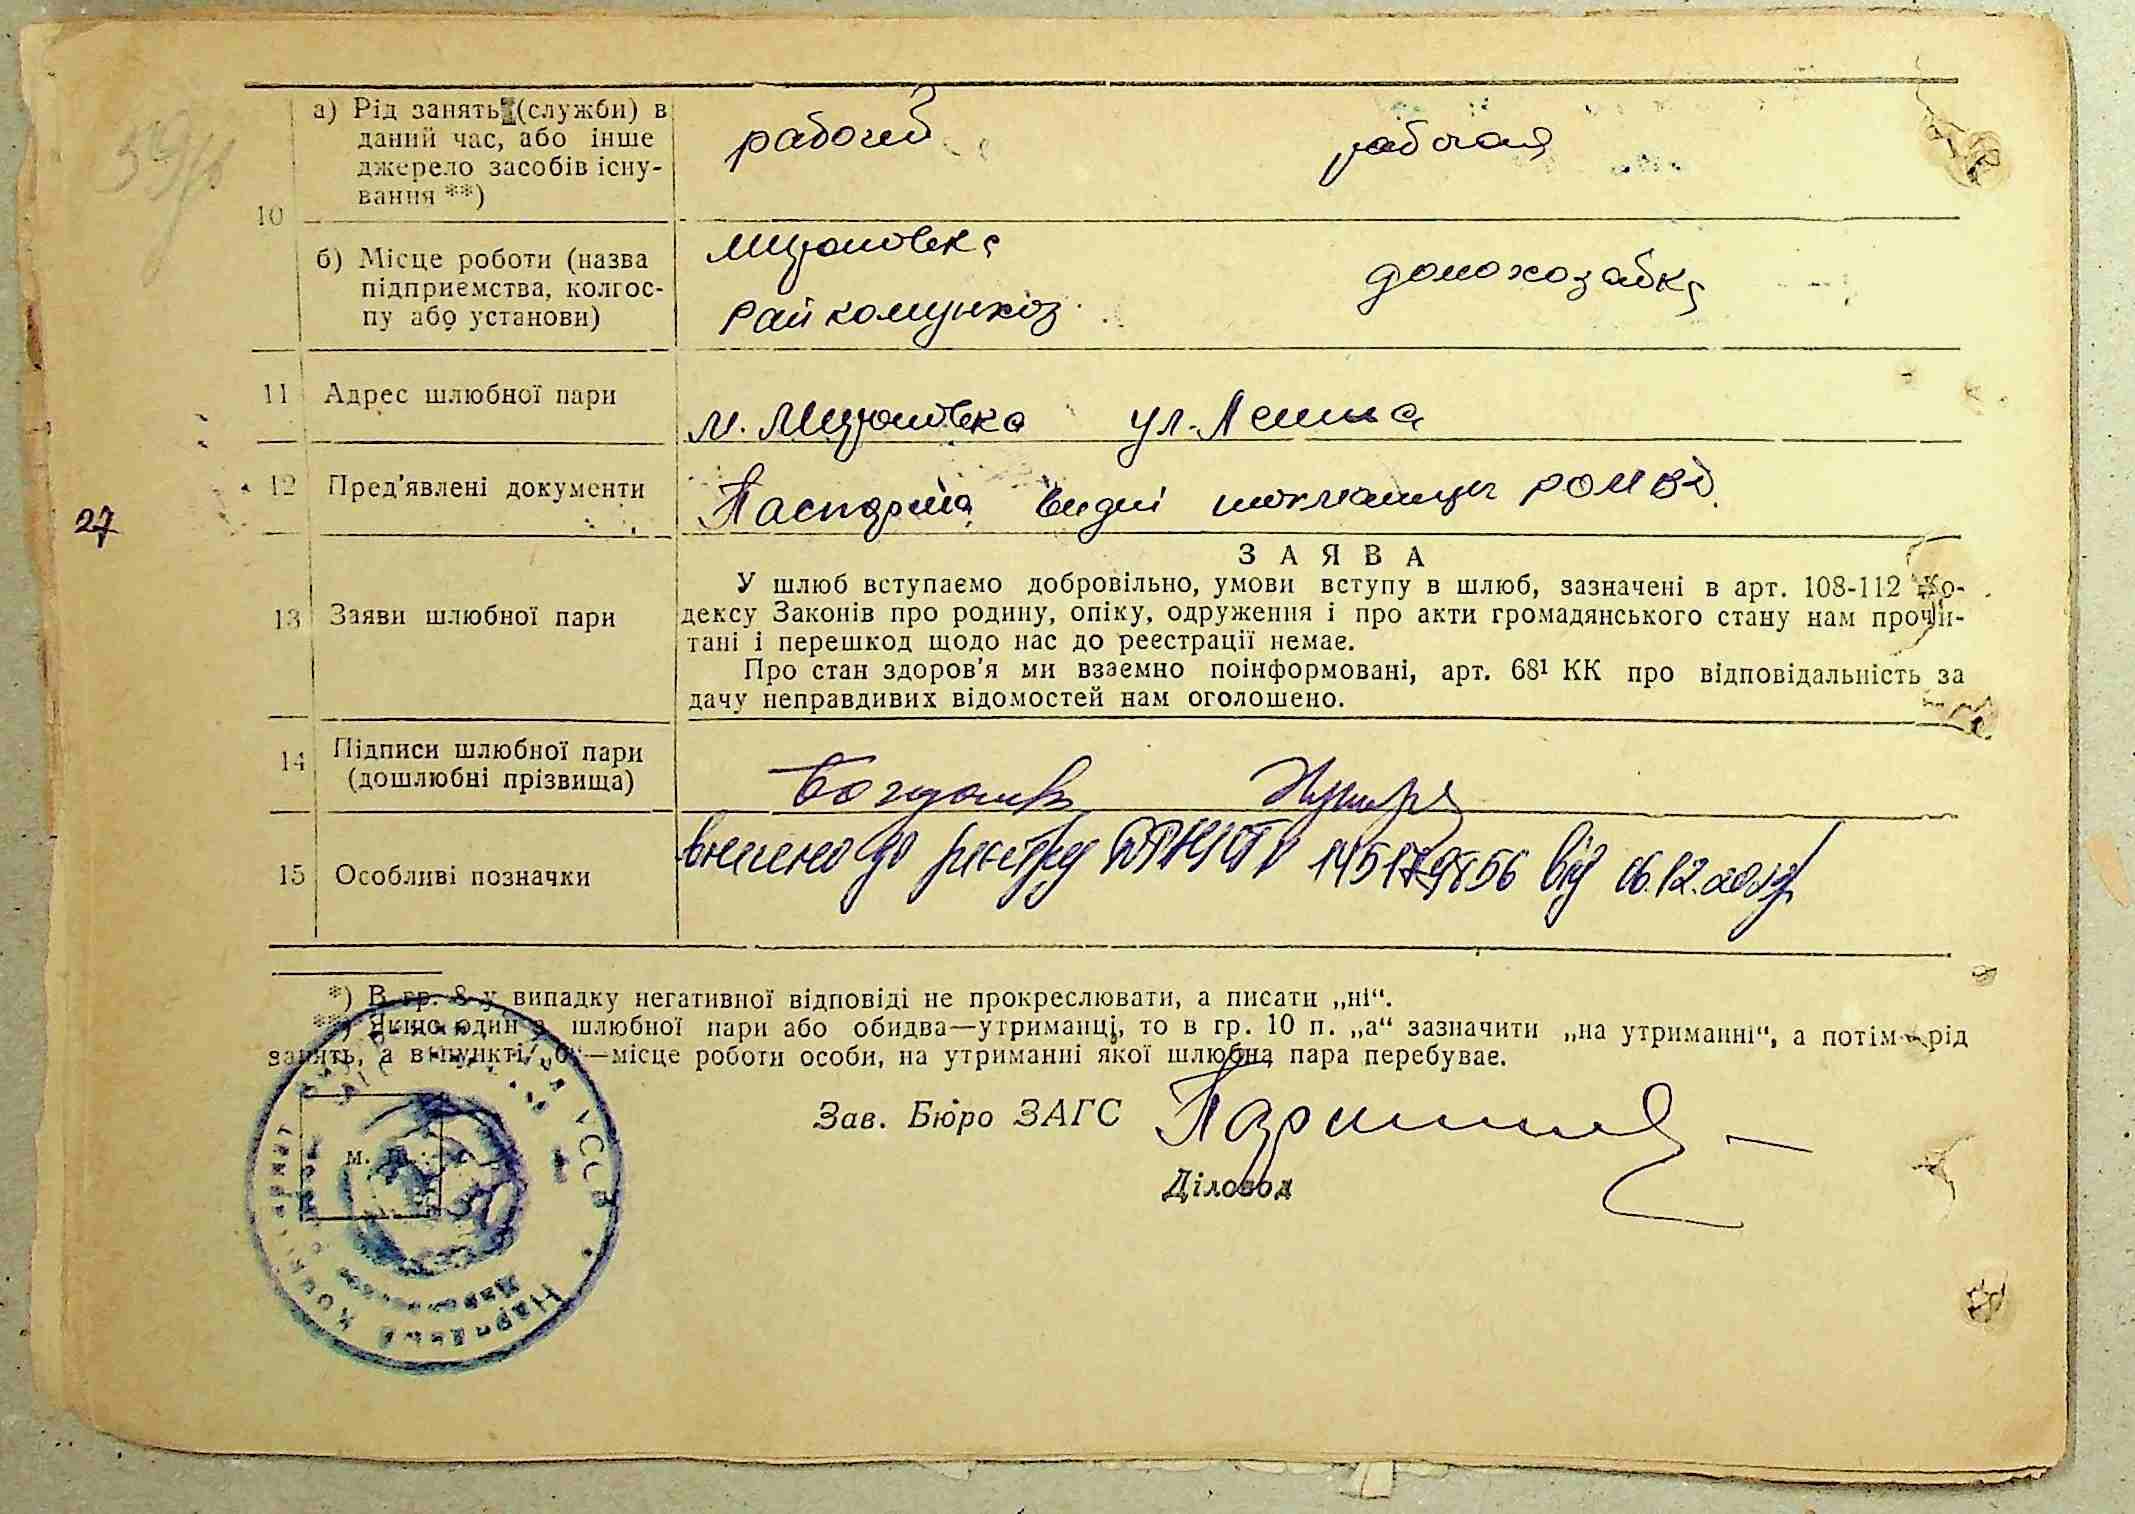 а) Рід занять (служби) в
даний час, або інше
джерело засобів існу-
вання **)
рабочий
рабочая
10
б) Місце роботи (назва
підприємства, колгос-
пу або установи)
райкомунхоз
домохозайка
11 Адрес шлюбної пари
м. ул. Ленина
12 Пред'явлені документи
Паспорта видні РОМВД.
27
З А Я В А
У шлюб вступаємо добровільно, умови вступу в шлюб, зазначені в арт. 108-112 Ко-
дексу Законів про родину, опіку, одруження і про акти громадянського стану нам прочи-
тані і перешкод щодо нас до реєстрації немає.
Про стан здоров'я ми взаємно поінформовані, арт. 68¹ КК про відповідальність за
дачу неправдивих відомостей нам оголошено.
13 Заяви шлюбної пари
14 Підписи шлюбної пари
(дошлюбні прізвища)
15 Особливі позначки
внесено до реєстру від 06.12.
*) В гр. 8 у випадку негативної відповіді не прокреслювати, а писати „ні“.
**) Якщо один з шлюбної пари або обидва—утриманці, то в гр. 10 п. „а“ зазначити „на утриманні“, а потім рід
занять, а в пункті „б“—місце роботи особи, на утриманні якої шлюбна пара перебуває.
Зав. Бюро ЗАГС
Діловод
м. п.
УССР
Народный